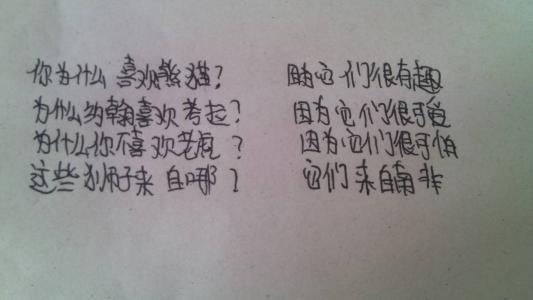 你为什么喜欢熊猫? 因为它们很有趣
为什么约翰喜欢考拉? 因为它们很可爱
为什么你不喜欢老虎? 因为它们很可怕
这些狮子来自哪? 它们来自南非